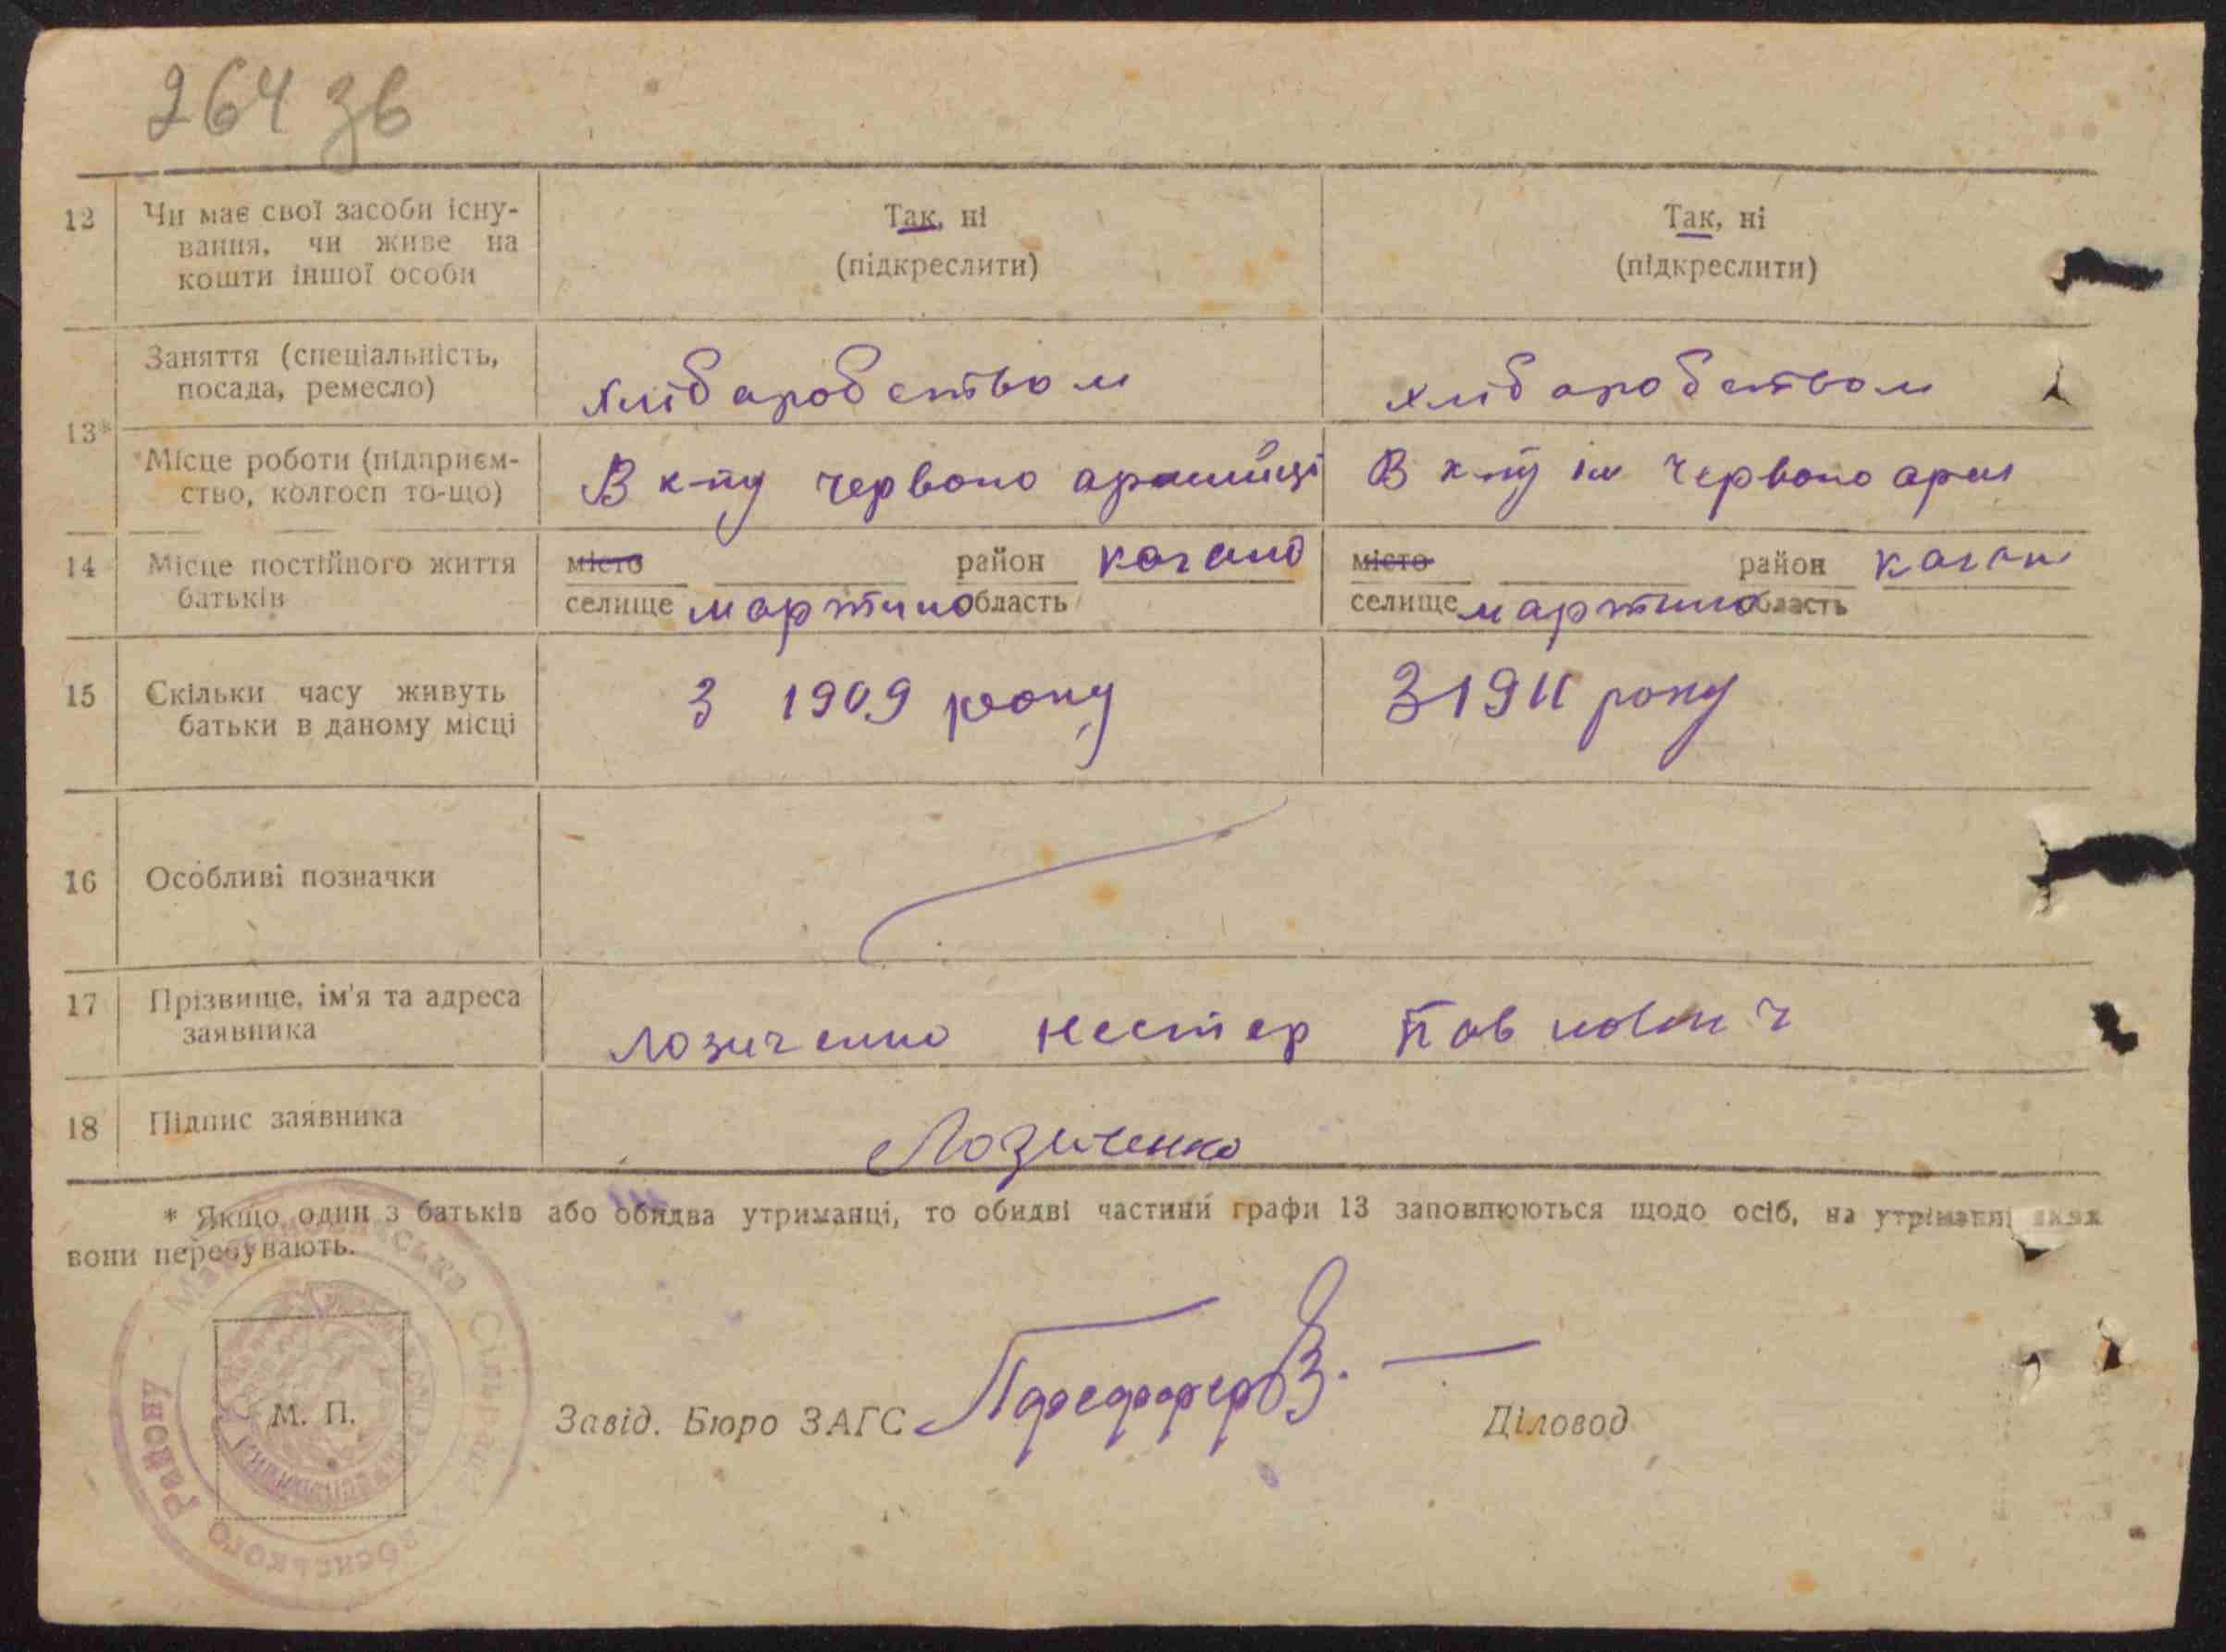 264 зв
12 Чи має свої засоби існу- Так, ні Так, ні
вання, чи живе на
кошти іншої особи (підкреслити) (підкреслити)
Заняття (спеціальність,
посада, ремесло) хлібаробством хлібаробством
13*
Місце роботи (підприєм-
ство, колгосп то-що) В к-пу червоно армийці В к-пу ім червоно арм
14 Місце постійного життя місто район кагано місто район каган
батьків селище мартино область селище мартино область
15 Скільки часу живуть З 1909 року З 1911 року
батьки в даному місці
16 Особливі позначки
17 Прізвище, ім'я та адреса
заявника Лозиченко Нестер Павлович
18 Підпис заявника Лозиченко
* Якщо один з батьків або обидва утриманці, то обидві частини графи 13 заповнюються щодо осіб, на утриманні яких
вони перебувають.
Сільрада
Району
М. П.
Завід. Бюро ЗАГС Діловод